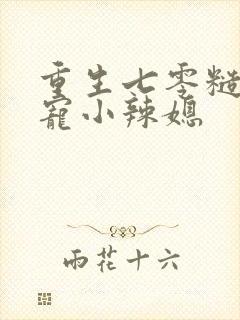 重生七零糙
寵小辣媳
雨花十六